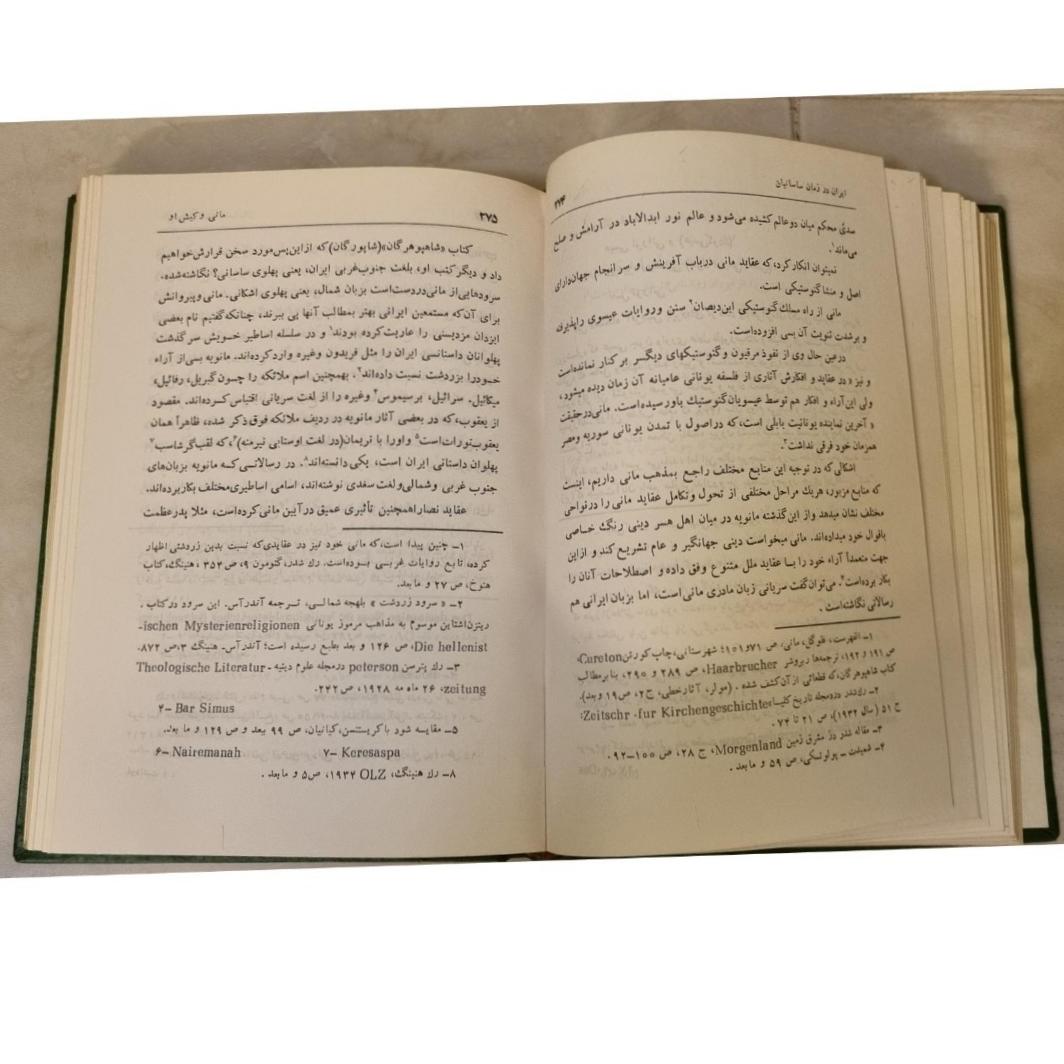 ایران در زمان ساسانیان
۲۷۴
سدی محکم میان دو عالم کشیده می‌شود و عالم نور ابدالاباد در آرامش و صلح
می‌ماند۱.
نمیتوان انکار کرد، که عقاید مانی درباب آفرینش و سرانجام جهان دارای
اصل و منشأ گنوستیکی است.
مانی از راه مسلك گنوستیکی ابن‌دیصان۲ سنن و روایات عیسوی را پذیرفته
و برشدت ثنویت آن بسی افزوده‌است.
درعین حال وی از نفوذ مرقیون و گنوستیکهای دیگر بر کنار نمانده‌است
و نیز «در عقاید و افکارش آثاری از فلسفه یونانی عامیانه آن زمان دیده میشود،
ولی این‌آراء و افکار هم توسط عیسویان گنوستیك باو رسیده است. مانی درحقیقت
«آخرین نماینده یونانیت بابلی است، که دراصول با تمدن یونانی سوریه ومصر
همزمان خود فرقی نداشت۳.
اشکالی که در توجیه این منابع مختلف راجع بمذهب مانی داریم، اینست
که منابع مزبور، هریك مراحل مختلفی از تحول وتکامل عقاید مانی را درنواحی
مختلف نشان میدهد و از این گذشته مانویه در میان اهل هسر دینی رنگ خاصی
باقوال خود میداده‌اند. مانی میخواست دینی جهانگیر و عام تشریع کند و ازاین
جهت متعمداً آراء خود را بسا عقاید ملل متنوع وفق داده و اصطلاحات آنان را
بکار برده‌است۴. می‌توان گفت سریانی زبان مادری مانی است، اما بزبان ایرانی هم
رسالاتی نگاشته‌است.
۱– الفهرست، فلوگل، مانی، ص۷۱و۱۵۱؛ شهرستانی، چاپ کورتن Cureton،
ص ۱۹۱ و ۱۹۲، ترجمه‌ها ربروشر Haarbrucher، ص ۲۸۹ و ۲۹۰، بنا بر مطالب
کتاب شاهپوهرگان، که قطعاتی از آن کشف شده. (مولر، آثارخطی، ج۲، ص۱۹ وبعد).
۲– رك‌شدر درمجله تاریخ کلیسا Zeitschr .fur Kirchengeschichte؛
ج ۵۱ (سال ۱۹۳۲)، ص ۲۱ تا ۷۴.
۳– مقاله شدر در مشرق زمین Morgenland، ج ۲۸، ص ۱۰۰–۹۲.
۴– شمیدت – پولوتسکی، ص ۵۹ و ما بعد.
مانی وکیش او
۲۷۵
کتاب «شاهپوهرگان»(شاپورگان) که ازاین‌پس مورد سخن قرارش خواهیم
داد و دیگر کتب او، بلغت جنوب‌غربی ایران، یعنی پهلوی ساسانی؟ نگاشته‌شده.
سرودهایی از مانی دردست است بزبان شمال، یعنی پهلوی اشکانی. مانی وپیروانش
برای آن‌که مستمعین ایرانی بهتر بمطالب آنها پی ببرند، چنانکه گفتیم نام بعضی
ایزدان مزدیسنی را عاریت کرده بودند۱ و در سلسله اساطیر خسویش سرگذشت
پهلوانان داستانسی ایران را مثل فریدون وغیره وارد کرده‌اند. مانویه بسی‌از آراء
خسودرا بزردشت نسبت داده‌اند۲. بهمچنین اسم ملائکه را چسون گبریل، رفائیل،
میکائیل. سرائیل، برسیموس۴ وغیره را از لغت سریانی اقتباس کسرده‌اند. مقصود
از یعقوب، که در بعضی آثار مانویه در ردیف ملائکه فوق ذکر شده، ظاهراً همان
یعقوب تورات است۵ و اورا با نریمان(در لغت اوستایی نیرمنه)۶، که لقب گرشاسب۷
پهلوان داستانی ایران است، یکی دانسته‌اند۸. در رسالاتی کسه مانویه بزبان‌های
جنوب غربی وشمالی‌و لغت سغدی نوشته‌اند، اسامی اساطیری مختلف بکار برده‌اند.
عقاید نصارا همچنین تأثیری عمیق در آیین مانی کرده‌است، مثلا پدرعظمت
۱– چنین پیدا است، که مانی خود نیز در عقایدی که نسبت بدین زردشتی اظهار
کرده، تابع روایات غربسی بسوده‌است. رك شدر، گنومون ۹، ص ۳۵۳، هنینگ، کتاب
هنوخ، ص ۲۷ و ما بعد.
۲– «سرود زردشت» بلهجه شمالسی، ترجمه آندرآس. این سرود در کتاب.
ریتزن‌اشتاین موسوم به مذاهب مرموز یونانی ischen Mysterienreligionen-
Die hellenist، ص ۱۲۶ و بعد بطبع رسیده است؛ آندرآس. هنینگ ۳، ص ۸۷۲.
۳– رك پترسن peterson درمجله علوم دینیه Theologische Literatur-
zeitung، ۲۶ ماه مه ۱۹۲۸، ص ۲۴۲.
۴– Bar Simus
۵– مقایسه شود با کریستنسن، کیانیان، ص ۹۹ ببعد و ص ۱۲۹ و ما بعد.
۶– Nairemanah ۷– Keresaspa
۸– رك هنینگ، OLZ ۱۹۳۴، ص۵ و ما بعد.